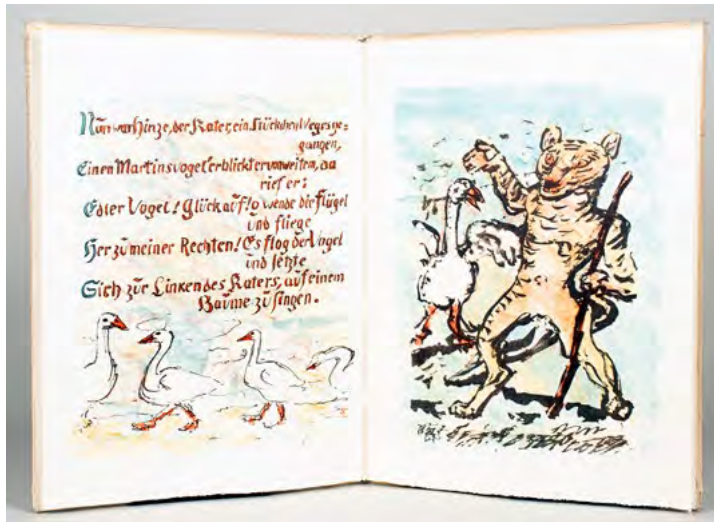 Nun war Hinze, der Kater, ein Stückchen Weges ge=
gangen,
Einen Martinsvogel erblickt er von weitem, da
rief er:
Edler Vogel! Glück auf! o wende die Flügel
und fliege
Her zu meiner Rechten! Es flog der Vogel
und setzte
Sich zur Linken des Katers, auf einem
Baume zu singen.